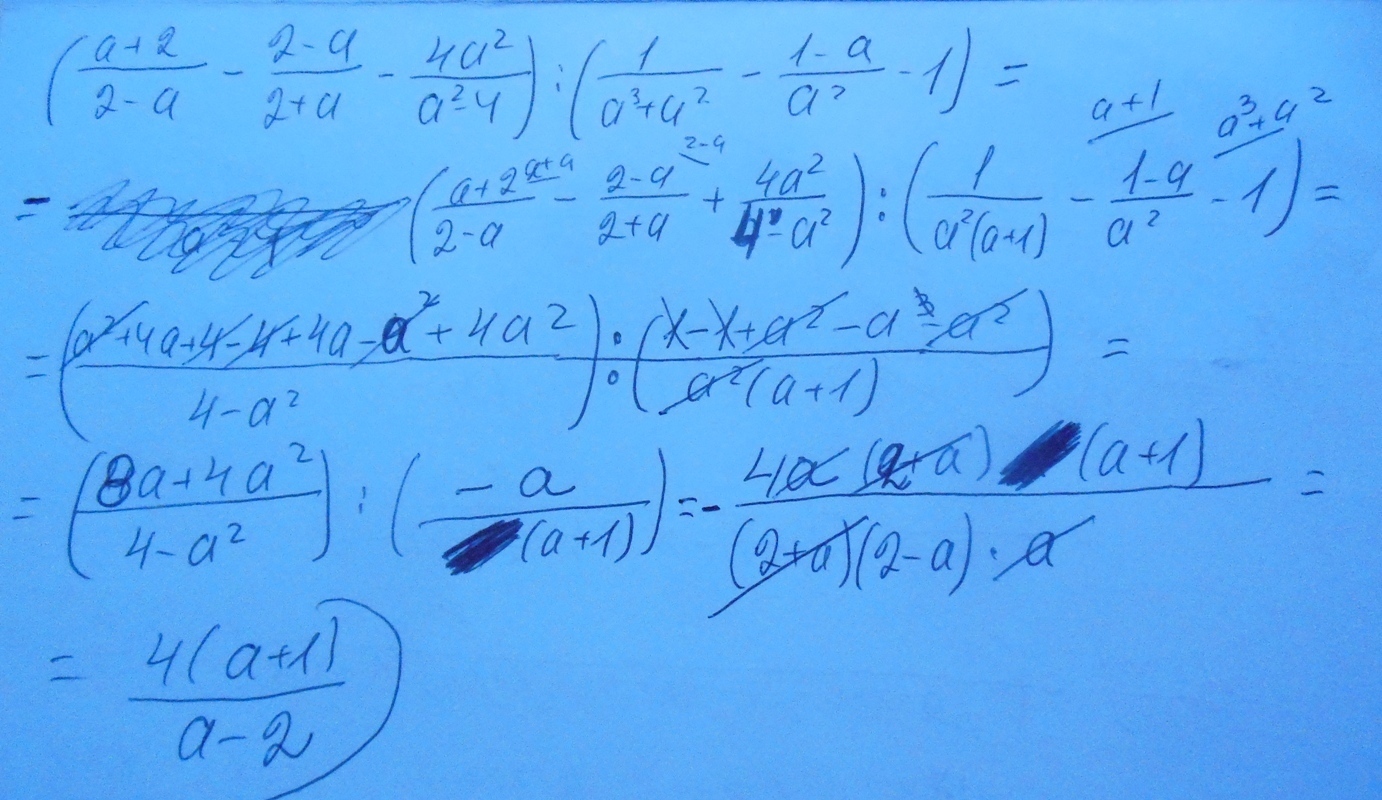 ((a+2)/(2-a) - (2-a)/(2+a) - 4a²/(a²-4)) : (1/(a³+a²) - (1-a)/a² - 1) =
= ((a+2)/(2-a) - (2-a)/(2+a) 2-a + 4a²/(4-a²)) : (1/(a²(a+1)) - (1-a)/a² a+1 - 1 a³+a²) =
= ((a²+4a+4-4+4a-a²+4a²)/(4-a²)) : ((1-1+a²-a³-a²)/(a²(a+1))) =
= ((8a+4a²)/(4-a²)) : (-a/(a+1)) = - 4a(2+a)(a+1)/((2+a)(2-a)·a) =
= 4(a+1)/(a-2)